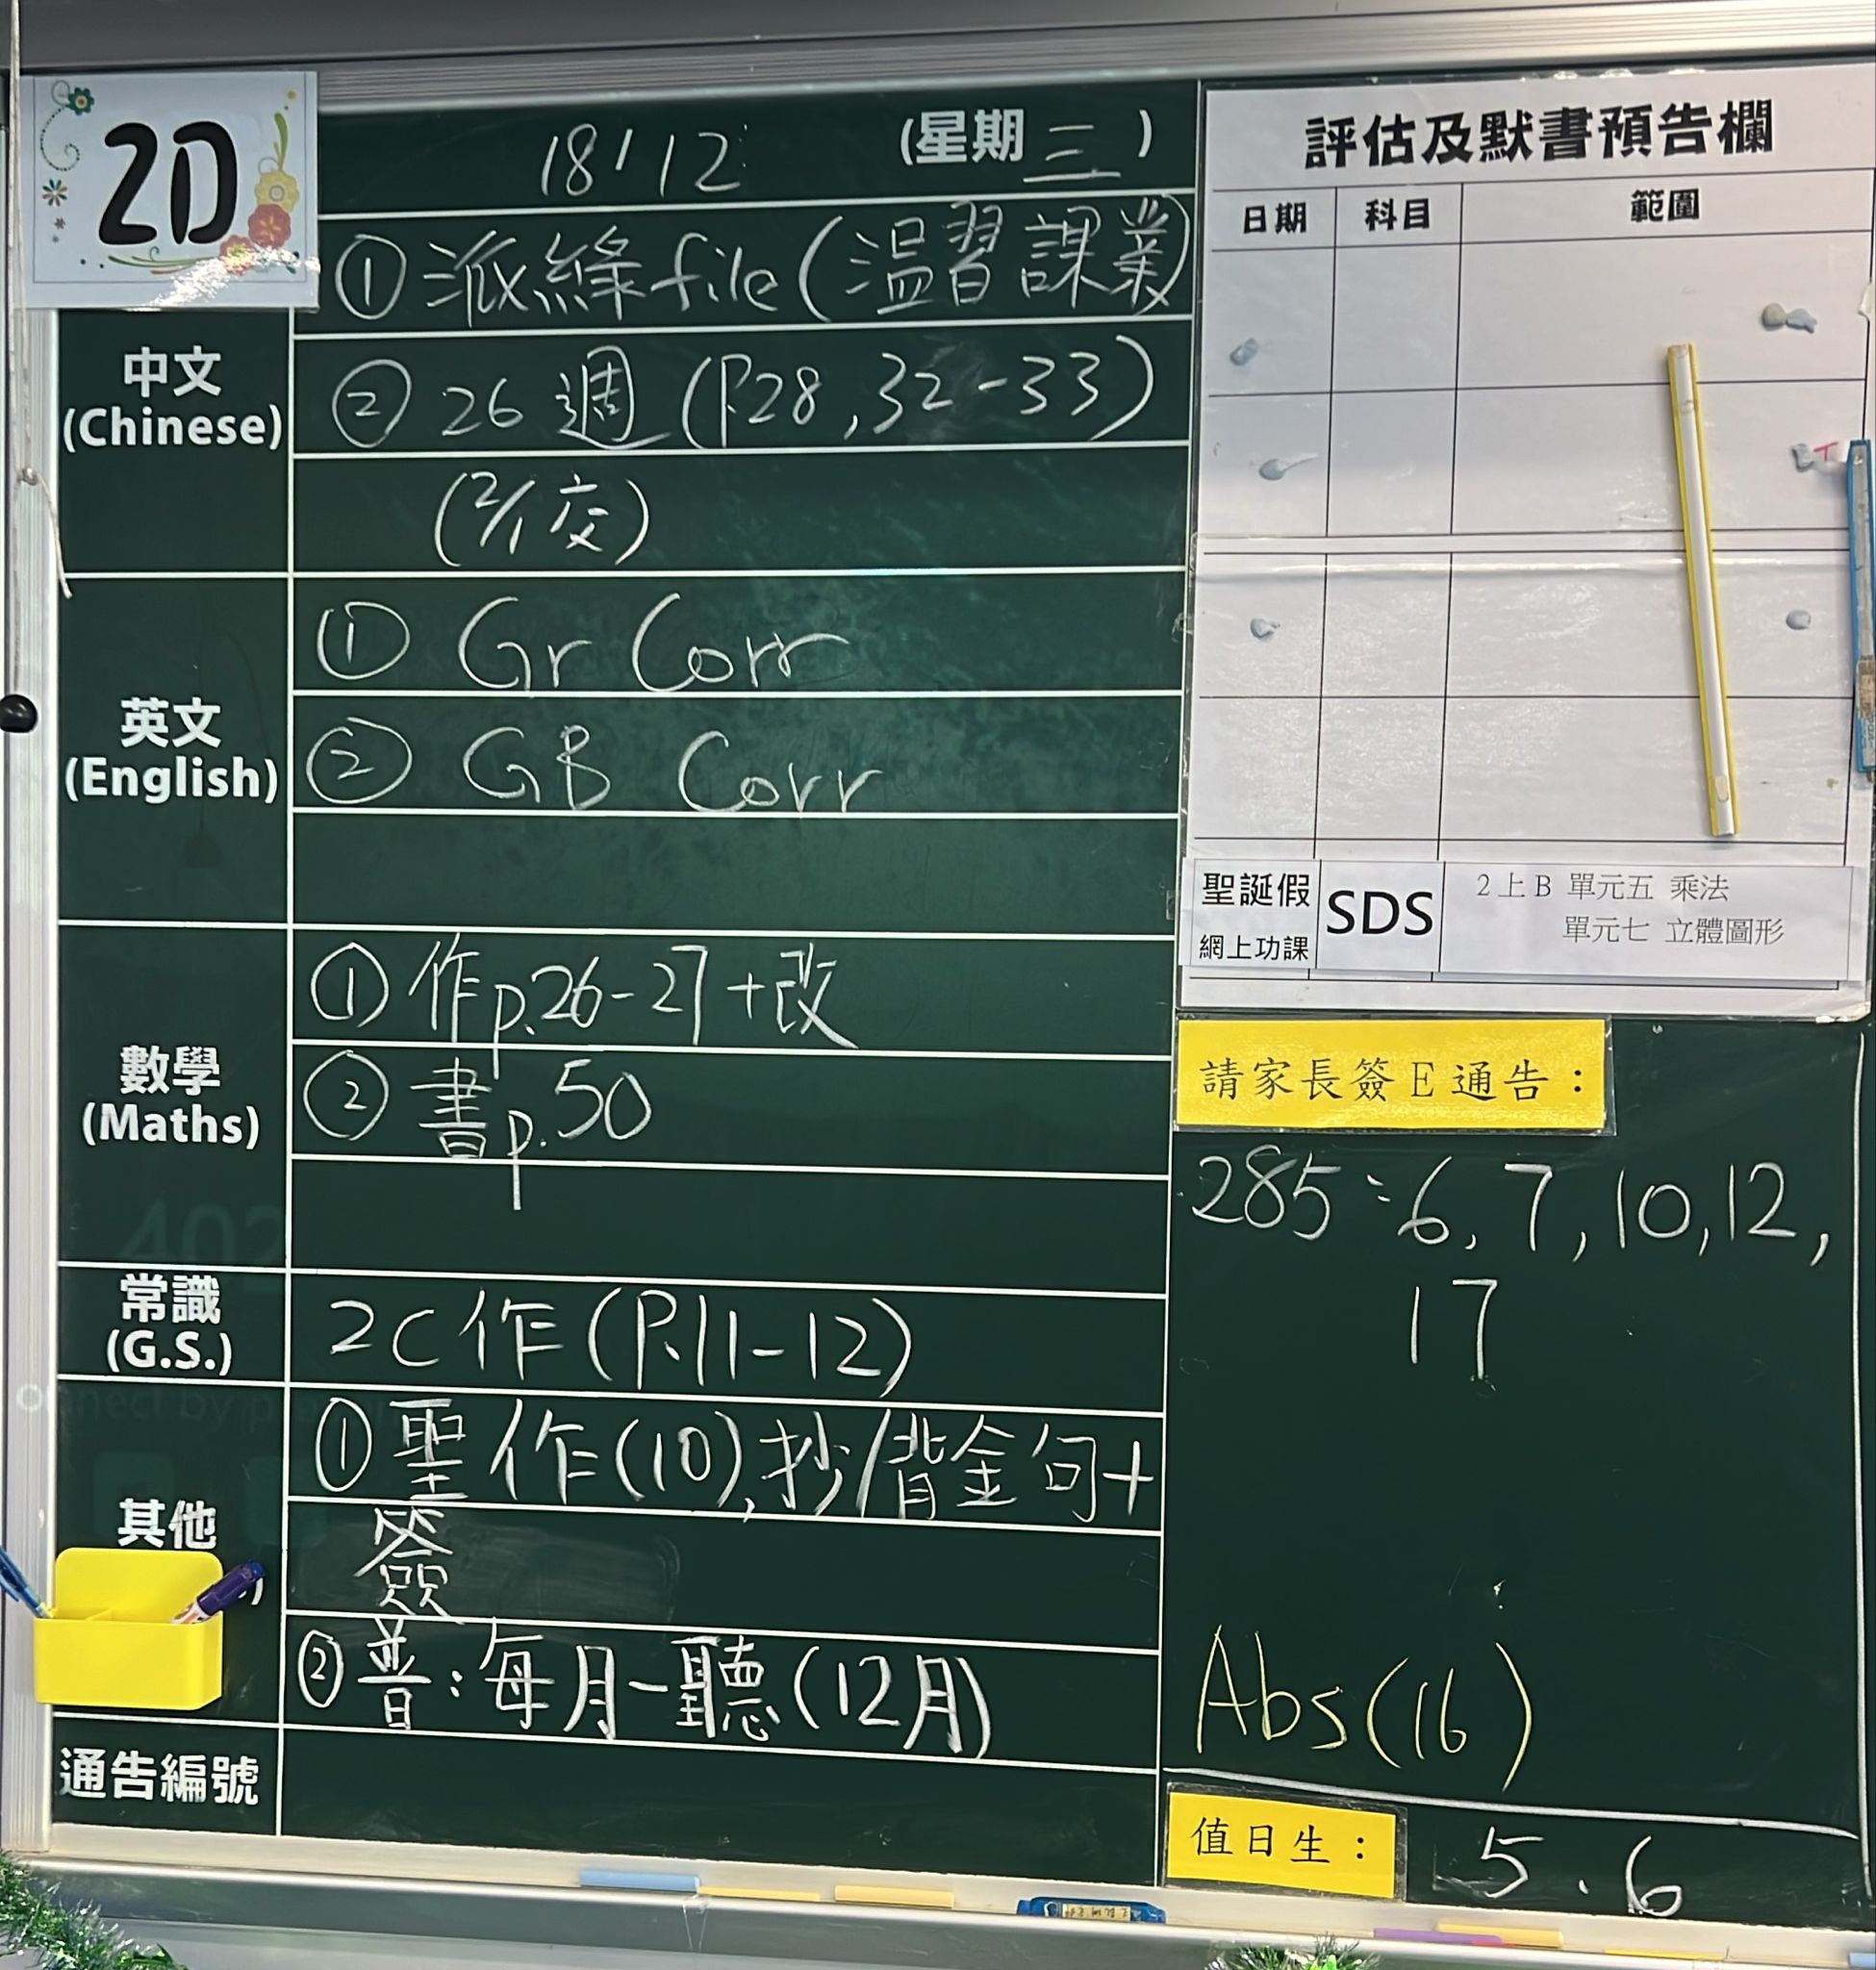 2D
18/12 (星期三)
中文
(Chinese)
①派綠file(温習課業)
②26週(P.28,32-33)
(2/1交)
英文
(English)
①Gr Corr
②GB Corr
數學
(Maths)
①作p.26-27+改
②書p.50
常識
(G.S.)
2C作(P.11-12)
其他
①聖作(10),抄/背金句+
簽
②普:每月一聽(12月)
通告編號
評估及默書預告欄
日期 科目 範圍
聖誕假
網上功課
SDS
2上B 單元五 乘法
單元七 立體圖形
請家長簽E通告:
285:6,7,10,12,
17
Abs(16)
值日生:
5.6